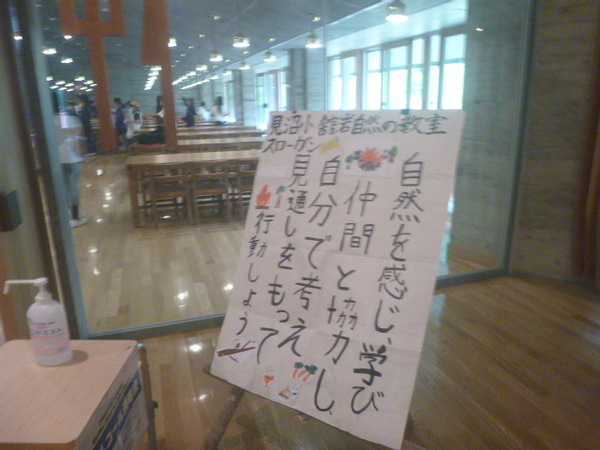 見沼小 舘岩自然の教室
スローガン
自然を感じ、学び
仲間と協力し
自分で考え
見通しをもって
行動しよう